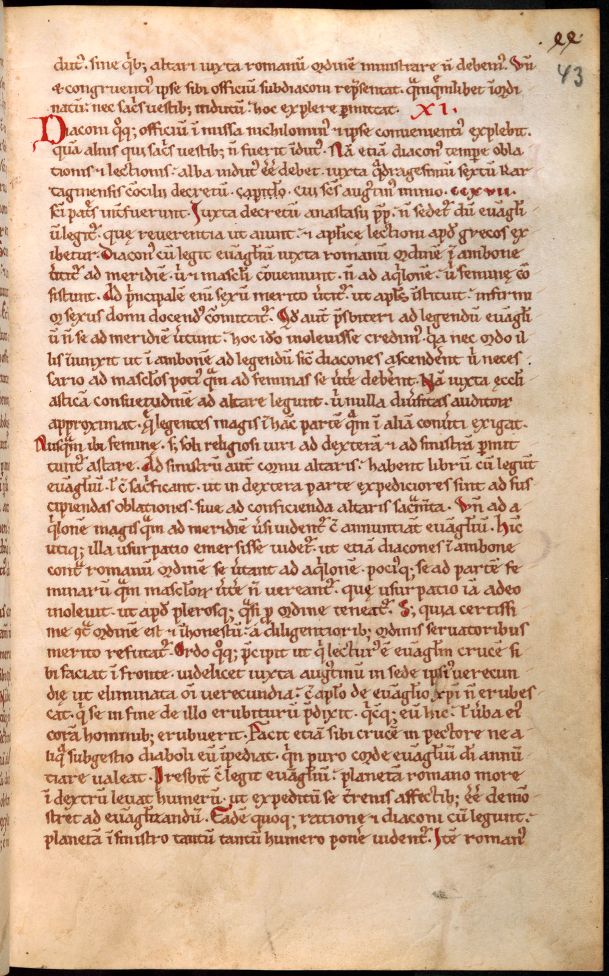 43
dut̄. sine q̇b; altari iuxta romanū ordinē ministrare n̄ debem᷒. Vn̄
& congruenti᷒ ipse sibi officiū subdiaconi rep̄sentat. q̄m quēlibet īordi
natū: nec sac̄s vestib; indutū: hoc explere p̄mittat. XI.
Diaconi q̊q; officiū ī missa nichilomin᷒ & ipse convenient᷒ explebit.
quā alius qui sac̄s vestib; n̄ fuerit īdut᷒. Nā etiā diacon᷒ tempr̄e obla
tionis & lectionis: alba indut᷒ ēē debet. iuxta q̄dragesimū sextū kar
taginensis concilii decretū. capitl̄o. cui sc̄s augustin᷒ cccxvii.
sc̄i patr̄s int̄fuerunt. Iuxta decretū anastasii pp̄. n̄ sedet᷒ dū euāgl̄i
ū legit᷒. quę reverentia ut aiunt: & aplicę lectioni apd̄ grecos ex
ibetur. Diacon᷒ cū legit euāgl̄iū iuxta romanū ordinē ī ambone
ūtit᷒ ad meridiē. ū & masc̄li cōveniunt. n̄ ad aq̇lonē. ū feminę cō
sistunt. Ad p̄ncipalē enī sexū merito ūtit᷒. ut apl̄s īstituit. infirmi
or sexus domi docend᷒ cōmittit᷒. Qd̄ aut̄ p̄sb̄iteri ad legendū euāgl̄i
ū n̄ se ad meridiē ūtunt: hoc id̊o inolevisse credim᷒. q̇a nec ordo il
lis iniunxit ut ī ambonē ad legendū sic̄ diacones ascender̄nt ū neces
sario ad masc̄los poti᷒ q̄m ad feminas se ūt̄e deber̄nt. Nā iuxta eccl̄i
asticā consuetudinē ad altare legunt. ū nulla diūsitas auditor̄
approximat. q̄ legentes magis ī hāc partē q̄m ī aliā conūti exigat.
Nusq̄m ibi feminę. s; soli religiosi viri ad dexterā & ad sinistrā p̄mit
tunt᷒ astare. Ad sinistrū aut̄ cornu altaris: habent librū cū legūt
euāgl̄iū. l̄ c̄ sac̄ficant. ut in dextera parte expediciores sint ad sus
cipiendas oblationes. sive ad conficienda altaris sac̄m̄ta. Vn̄ ad a
q̇lonē magis q̄m ad meridiē ūsi vident᷒ c̄ annuntiāt euāgl̄iū. Hic
utiq; illa usurpatio emersisse videt᷒. ut etiā diacones ī ambone
cont̄ romanū ordinē se ūtant ad aq̇lonē. poci᷒q; se ad partē fe
minarū q̄m masclor̄ ūt̄e n̄ vereant᷒. quę usurpatio iā adeo
inolevit. ut apd̄ plerosq; q̄si p̄ ordine teneat᷒. S; quia certissi
me 9t̄ ordinē est & īhonestū: ā diligentiorib; ordinis servatoribus
merito refutat᷒. Ordo q̊q; p̄cipit ut q̇ lectur᷒ ē euāgl̄m crucē si
bi faciat ī fronte. videlicet iuxta aug᷒tinū in sede ipsi᷒ verecun
dię ut eliminata om̄i verecundia: c̄ aplo de euāglio xp̄i n̄ erubes
cat. q̇ se in fine de illo erubiturū p̄dixit. q̇cq; eū hic. l̄ ūba ei᷒
corā hominib; erubuerit. Facit etiā sibi crucē in pectore ne a
liq̄ subgestio diaboli eū īpediat. q̇n puro corde euāgl̄iū dī annū
tiare valeat. Presb̄it̄ c̄ legit euāgl̄iū: planetā romano more
ī dextrū levat humerū. ut expeditū se c̄ ternis affectib; ēē demō
stret ad euāgl̄izandū. Eadē quoq; ratione & diaconi cū legunt.
planetā ī sinistro tantū tantū humero poner̄ vident᷒. Itē roman᷒